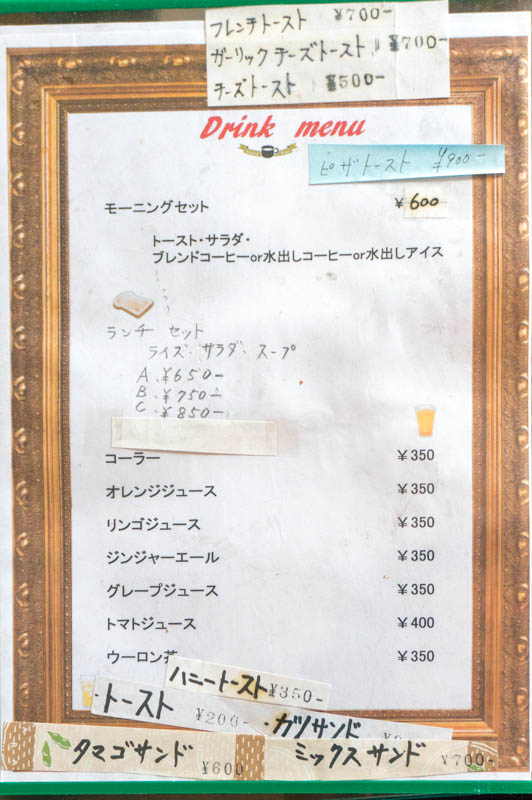 フレンチトースト ¥700-
ガーリックチーズトースト ¥700-
チーズトースト ¥500-
Drink menu
ピザトースト ¥900-
モーニングセット ¥600
トースト・サラダ・
ブレンドコーヒーor水出しコーヒーor水出しアイス
ランチ セット
ライズ・サラダ・スープ
A. ¥650-
B. ¥750-
C. ¥850-
コーラー ¥350
オレンジジュース ¥350
リンゴジュース ¥350
ジンジャーエール ¥350
グレープジュース ¥350
トマトジュース ¥400
ウーロン茶 ¥350
ハニートースト ¥350-
・トースト ¥200-
・カツサンド
タマゴサンド ¥600
ミックスサンド ¥700-